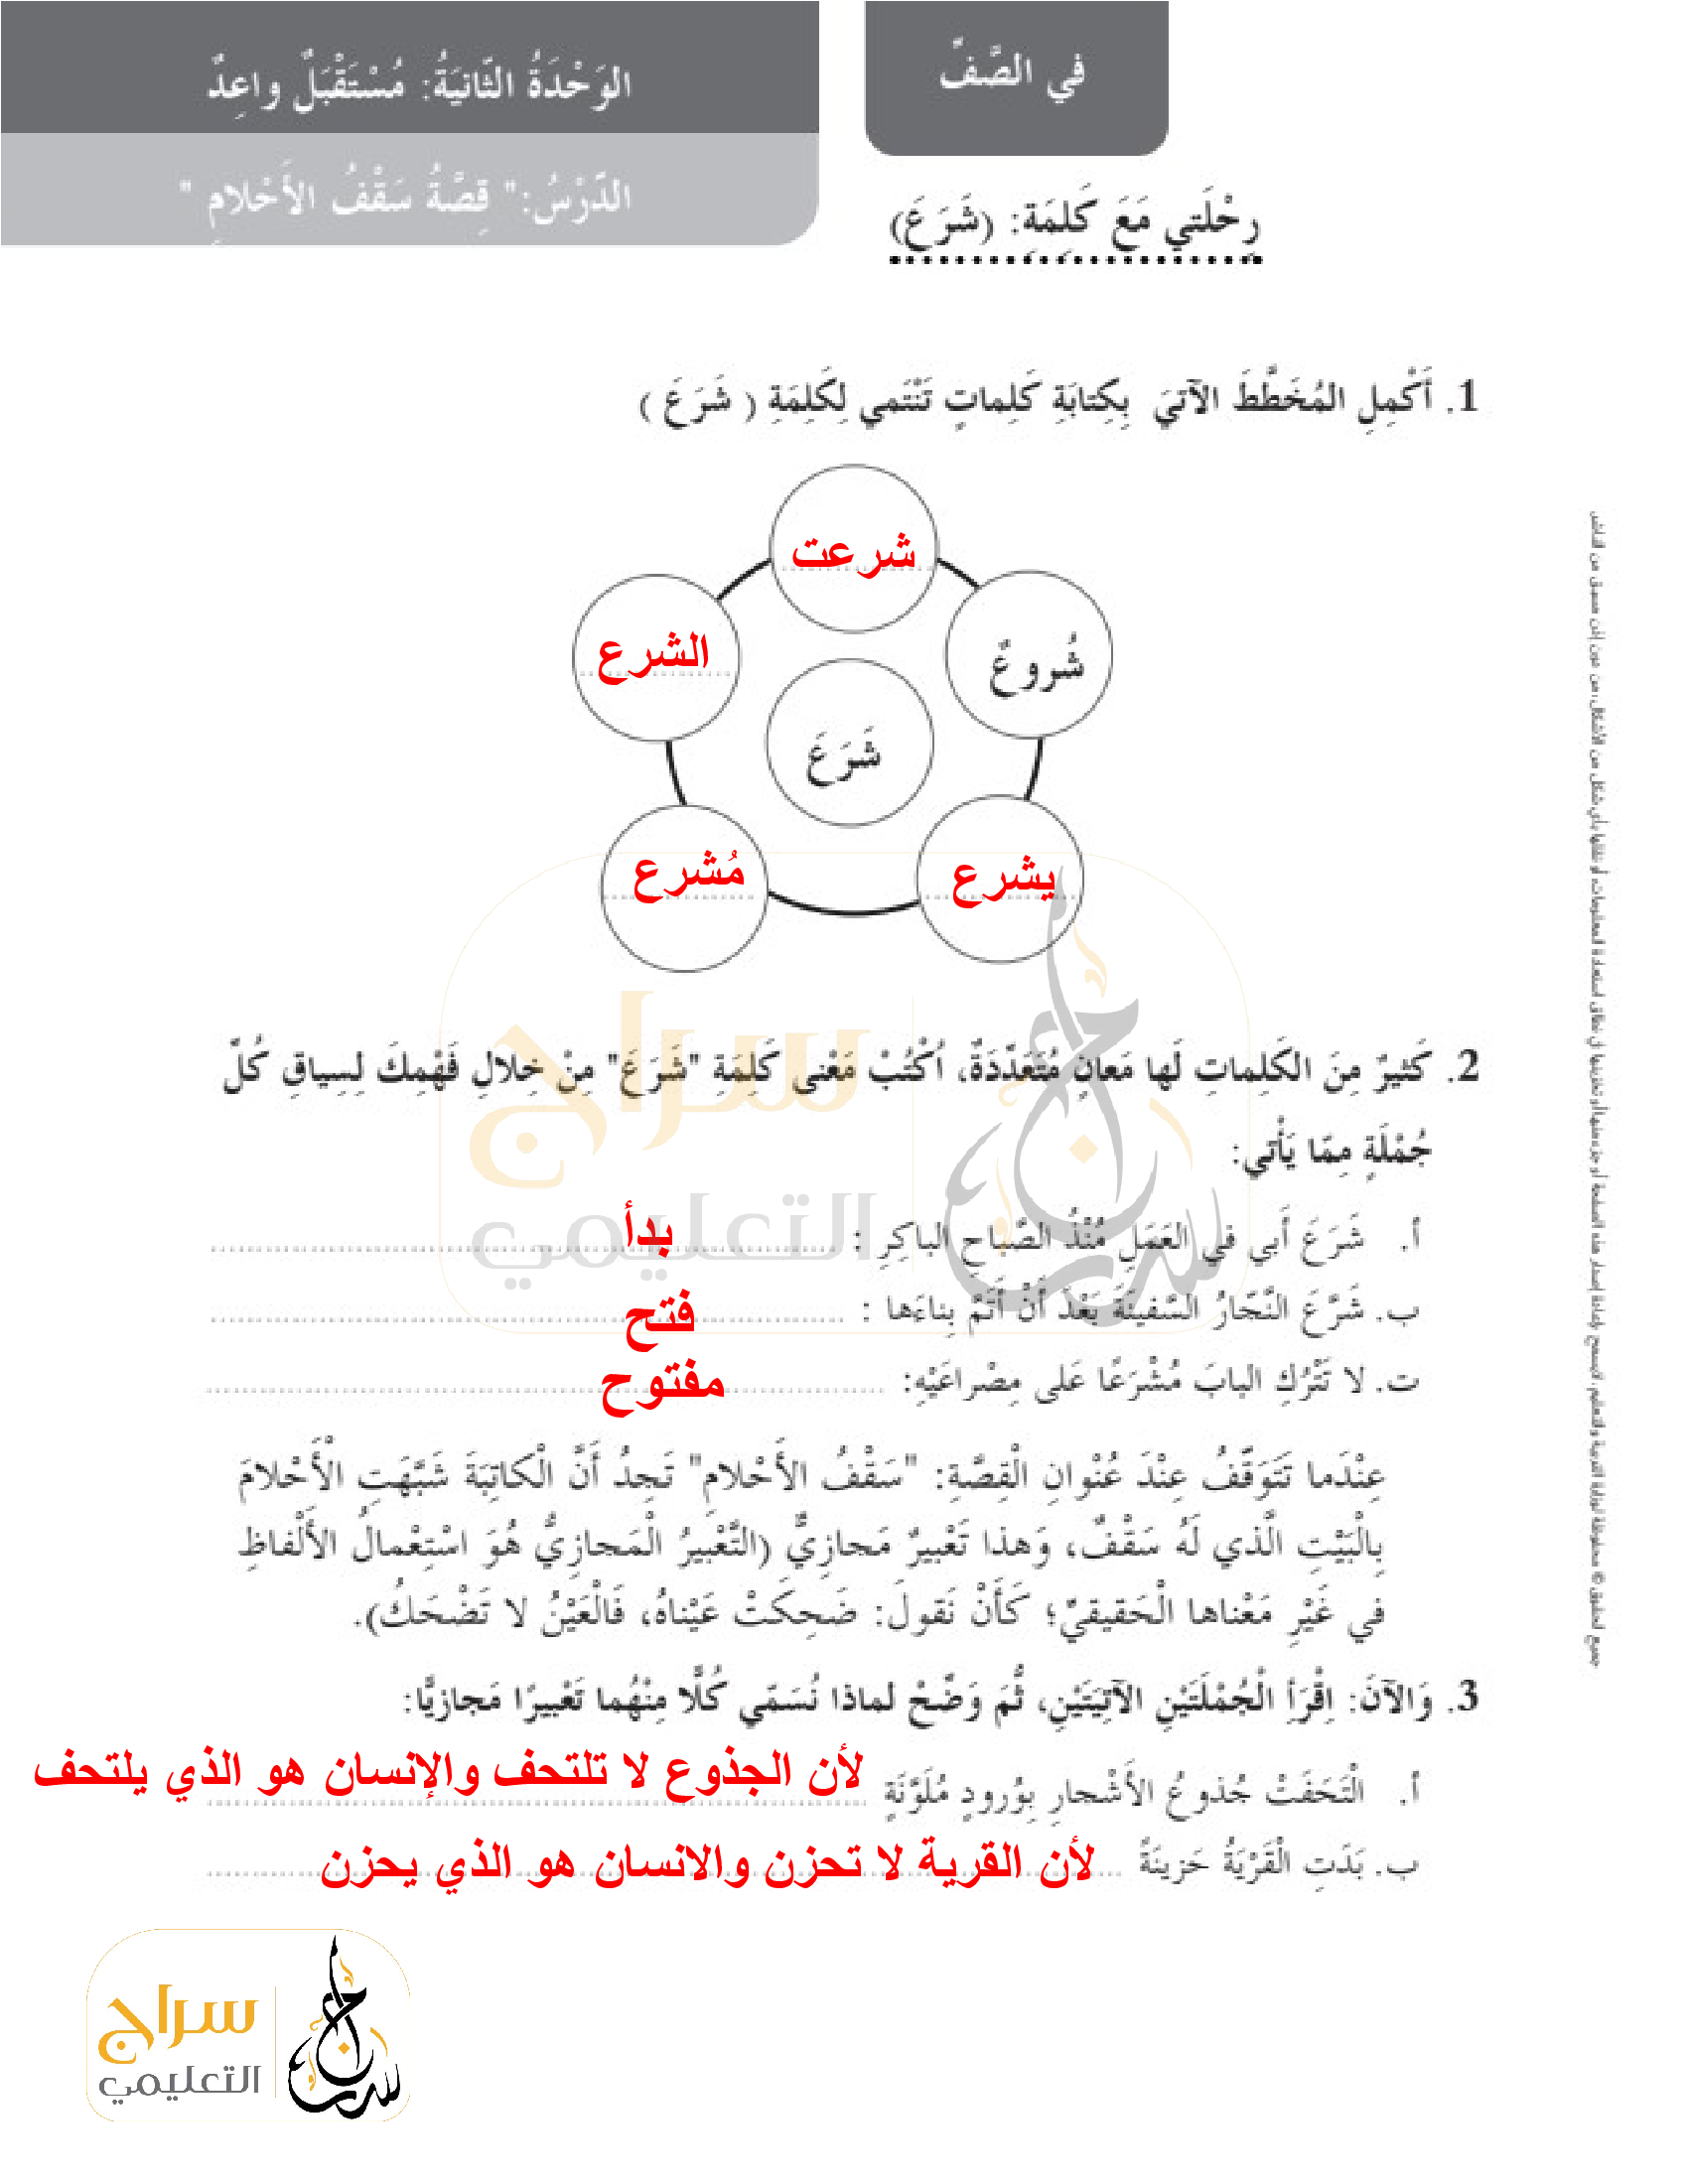 في الصَّفِّ
الوَحْدَةُ الثّانيَةُ: مُسْتَقْبَلٌ واعِدٌ
الدَّرْسُ: "قِصَّةُ سَقْفُ الأَحْلامِ "
رِحْلَتي مَعَ كَلِمَةِ: (شَرَعَ)
1. أَكْمِلِ المُخَطَّطَ الآتيَ بِكِتابَةِ كَلِماتٍ تَنْتَمي لِكَلِمَةِ ( شَرَعَ )
شرعت
شُروعٌ
الشرع
شَرَعَ
يشرع
مُشرع
2. كَثيرٌ مِنَ الكَلِماتِ لَها مَعانٍ مُتَعَدِّدَةٌ، اُكْتُبْ مَعْنى كَلِمَةِ "شَرَعَ" مِنْ خِلالِ فَهْمِكَ لِسِياقِ كُلِّ
جُمْلَةٍ مِمّا يَأْتي:
أ. شَرَعَ أَبي في العَمَلِ مُنْذُ الصَّباحِ الباكِرِ : بدأ
ب. شَرَّعَ النَّجّارُ السَّفينَةَ بَعْدَ أَنْ أَتَمَّ بِناءَها : فتح
ت. لا تَتْرُكِ البابَ مُشْرَعًا عَلى مِصْراعَيْهِ: مفتوح
عِنْدَما تَتَوَقَّفُ عِنْدَ عُنْوانِ الْقِصَّةِ: "سَقْفُ الأَحْلامِ" تَجِدُ أَنَّ الْكاتِبَةَ شَبَّهَتِ الْأَحْلامَ
بِالْبَيْتِ الَّذي لَهُ سَقْفٌ، وَهذا تَعْبيرٌ مَجازِيٌّ (التَّعْبيرُ الْمَجازِيُّ هُوَ اسْتِعْمالُ الأَلْفاظِ
في غَيْرِ مَعْناها الْحَقيقيِّ؛ كَأَنْ نَقولَ: ضَحِكَتْ عَيْناهُ، فَالْعَيْنُ لا تَضْحَكُ).
3. وَالآنَ: اِقْرَأِ الْجُمْلَتَيْنِ الآتِيَتَيْنِ، ثُمَّ وَضِّحْ لماذا نُسَمّي كُلًّا مِنْهُما تَعْبيرًا مَجازيًّا:
أ. الْتَحَفَتْ جُذوعُ الأَشْجارِ بِوُرودٍ مُلَوَّنَةٍ لأن الجذوع لا تلتحف والإنسان هو الذي يلتحف
ب. بَدَتِ الْقَرْيَةُ حَزينَةً لأن القرية لا تحزن والانسان هو الذي يحزن
سراج
التعليمي